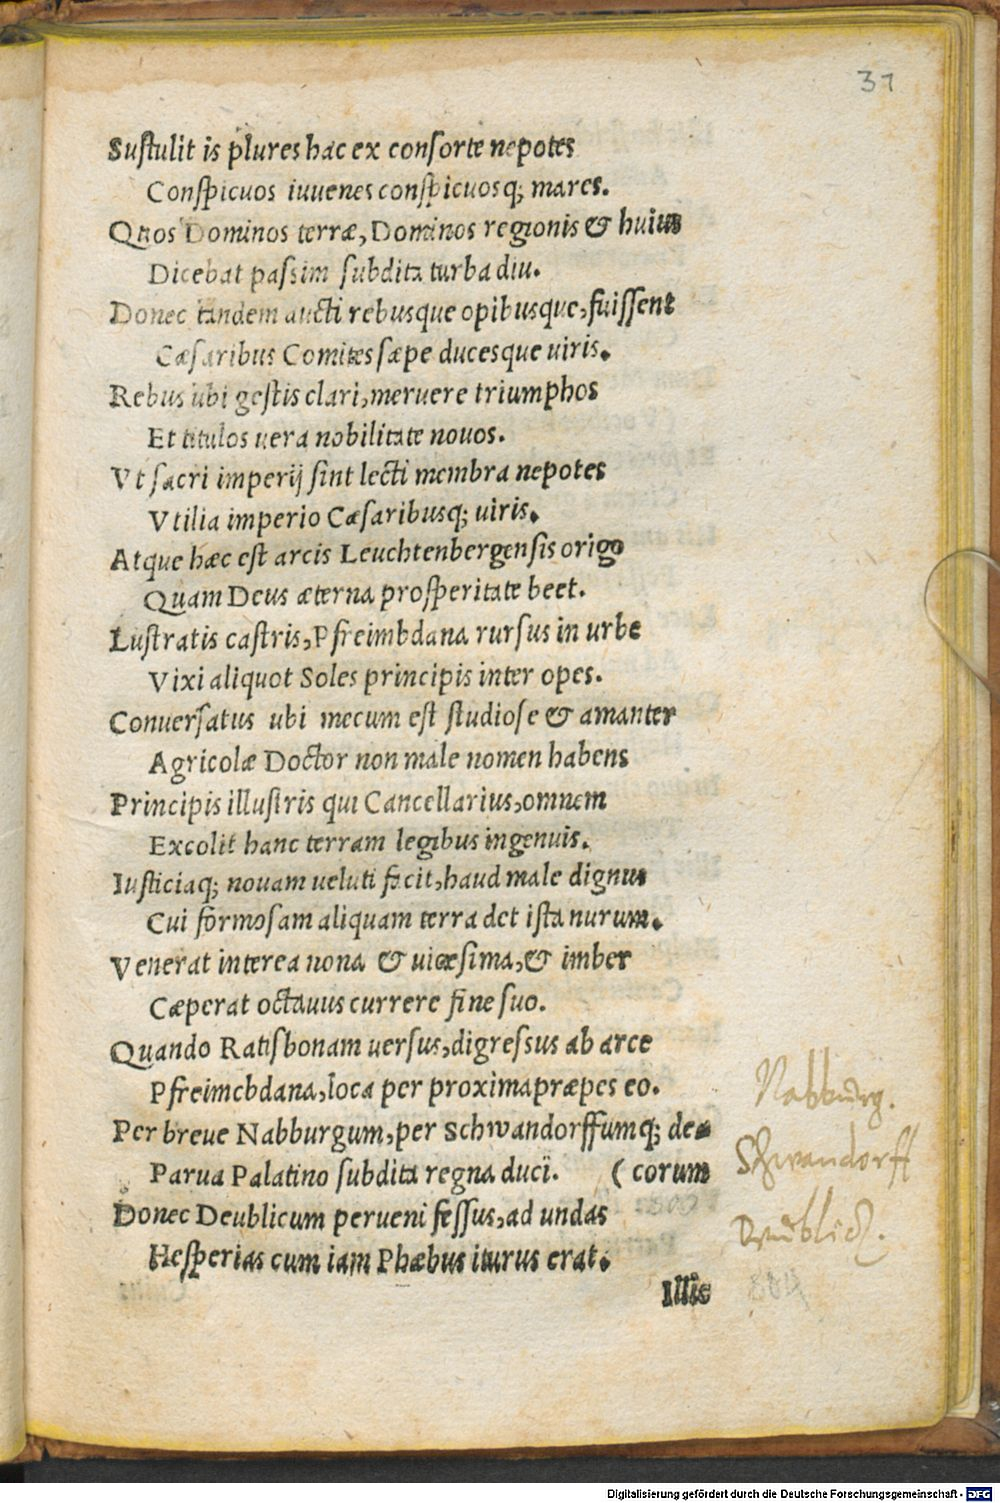 31
Sustulit is plures hac ex consorte nepotes
Conspicuos iuvenes conspicuosq; mares.
Quos Dominos terræ, Dominos regionis & huius
Dicebat passim subdita turba diu.
Donec tandem aucti rebusque opibusque, fuissent
Cæsaribus Comites sæpe ducesque uiris.
Rebus ubi gestis clari, meruere triumphos
Et titulos uera nobilitate nouos.
Vt sacri imperij sint lecti membra nepotes
Vtilia imperio Cæsaribusq; uiris.
Atque hæc est arcis Leuchtenbergensis origo
Quam Deus æterna prosperitate beet.
Lustratis castris, Pfreimbdana rursus in urbe
Vixi aliquot Soles principis inter opes.
Conuersatus ubi mecum est studiose & amanter
Agricolæ Doctor non male nomen habens
Principis illustris qui Cancellarius, omnem
Excolit hanc terram legibus ingenuis.
Iusticiaq; nouam ueluti facit, haud male dignus
Cui formosam aliquam terra det ista nurum.
Venerat interea nona & uicæsima, & imber
Cæperat octauus currere fine suo.
Quando Ratisbonam uersus, digressus ab arce
Pfreimebdana, loca per proxima præpes eo.
Per breue Nabburgum, per Schwandorffumq; de-
Parua Palatino subdita regna duci. (corum
Donec Deublicum perueni fessus, ad undas
Hesperias cum iam Phæbus iturus erat.
Illic
Nabburg.
Schwandorff
Deublich.